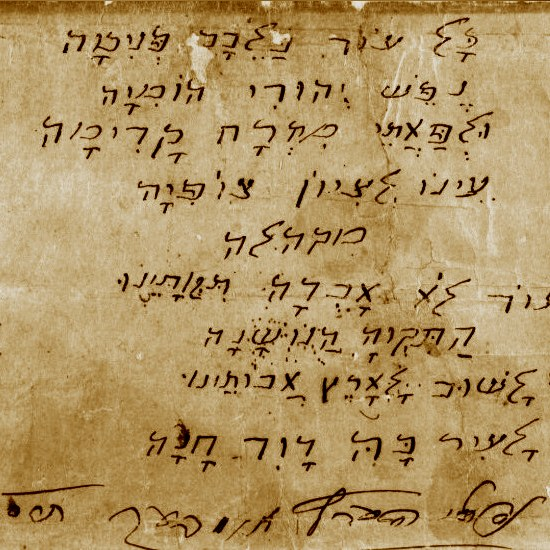 כָּל עוֹד בַּלֵּבָב פְּנִימָה
נֶפֶש יְהוּדִי הוֹמִיָּה
וּלְפַאֲתֵי מִזְרָח קָדִימָה
עֵינוֹ לְצִיוֹן צוֹפִיָּה
מקהלה
עוֹד לֹא אָבְדָה תִּקְוָתֵינוּ
הַתִּקְוָה הַנּוֹשָׁנָה
לָשׁוּב לָאָרֶץ אֲבוֹתֵינוּ
לָעִיר בָּהּ דָוִד חָנָה
נפתלי